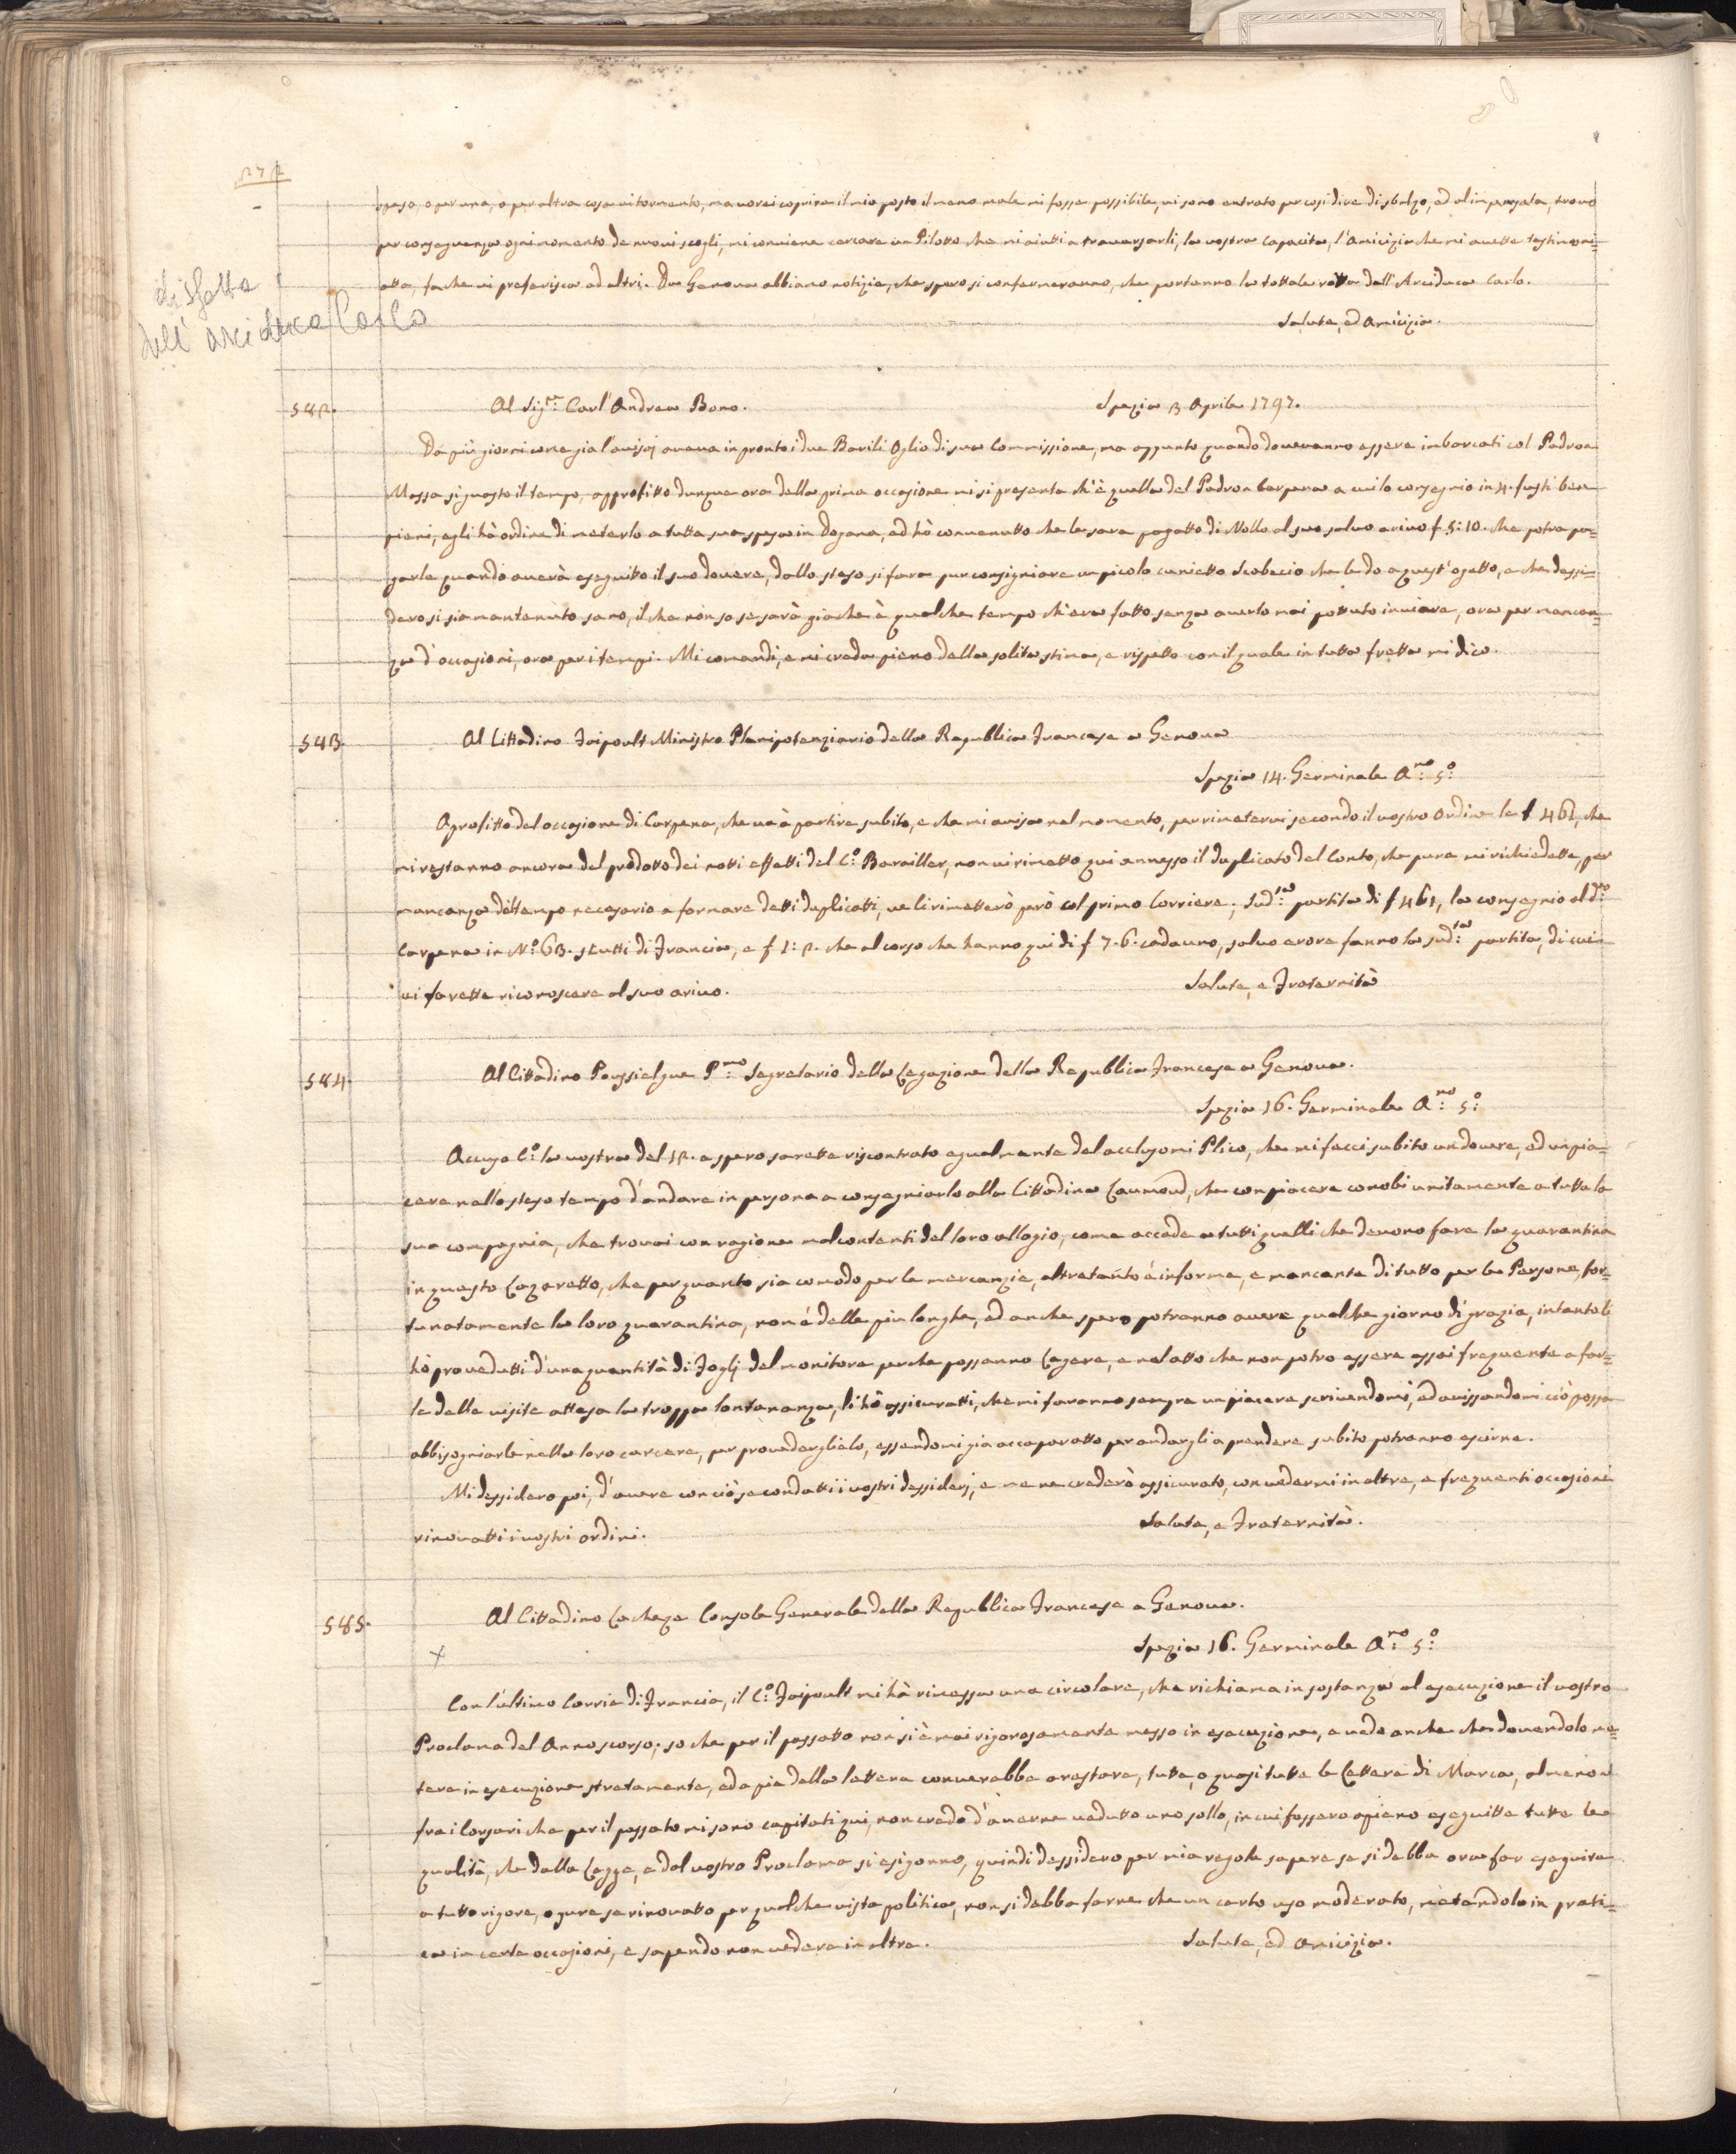 272
speso, o per una, o per altra cosa vi tormento, ma vorei coprire il mio posto il meno male mi fosse possibile, vi sono entrato per cosi dire di sbalzo, ed al impensata, trovo
per conseguenza ogni momento de nuovi scogli, mi conviene cercare un Pilotto che mi aiutti a traversarli, la vostra capacita, l'amicizia che mi avette testimoni=
atta, fa che vi preferisca ad altri. Da Genova abbiamo notizie, che spero si confermeranno, che portanno la tottale rotta dell'Arciduca Carlo.
disfatta
dell'arciduca Carlo
Salute, ed Amicizia.
582.
Al Sig.re Carl'Andrea Bono.
Spezia 3 Aprile 1797.
Da più giorni come gia l'avisai aveva in pronto i due Barili Oglio di sua Commissione, ma appunto quando doveranno essere imbarcati col Padron
Massa si guasto il tempo, approfitto dunque ora della prima occasione mi si presenta ch'è quella del Padron Carpena a cui lo consegnio in 4. fusti ben
pieni, egli hà ordine di meterlo a tutta sua spesa in Dogana, ed hò convenutto che le sara pagatto di Nollo al suo salvo arivo f 5:10. che potra pa=
garle quando averà eseguitto il suo dovere, dallo steso si fara pur consigniare un picolo cunietto Scobecio che le do a quest'ogetto, e che dessi=
dero si sia mantenuto sano, il che non so se sarà gia che è qualche tempo ch'era fatto senza averlo mai pottuto inviare, ora per mancan=
za d'occasioni, ora per i tempi. Mi comandi, e mi creda pieno della solita stima, e rispetto con il quale in tutta fretta mi dico.
583
Al Cittadino Faipoult Ministro Plenipotenziario della Republica Francese a Genova
Spezia 14. Germinale A.no 5.o
Aprofitto del occasione di Carpena, che và à partire subito, e che mi avisa nel momento, per rimetervi secondo il vostro Ordine le f 461, che
mi restanno ancora del prodotto dei notti effetti del C.o Barailler, non vi rimetto qui annesso il duplicato del Conto, che pure mi richiedette, per
mancanza del tempo necesario a formare detti duplicatti, ve li rimetterò però col primo Corriere; Sud.ta partita di f 461, la consegnio al d.to
Carpena in N.o 63. scutti di Francia, e f 1:2. che al corso che hanno qui di f 7.6. cadauno, salvo erore fanno la sud.ta partita, di cui
vi farette riconoscere al suo arivo.
Salute, e Fraternità
584.
Al Cittadino Poussielgue P.mo Segretario della Legazione della Republica Francese a Genova.
Spezia 16. Germinale A.no 5.o
Accuso C.o la vostra del 12. e spero sarette riscontrato egualmente del acclusomi Plico, che mi feci subito un dovere, ed un pia=
cere nello steso tempo d'andare in persona a consegniarlo alla Cittadina Caumond, che con piacere conobi unitamente a tutta la
sua compagnia, che trovai con ragione malcontenti del loro allogio, come accade a tutti quelli che devono fare la quarantina
in questo Lazaretto, che per quanto sia comodo per le mercanzie, altretanto è informe, e mancante di tutto per le Persone, for=
tunatamente la loro quarantina, non é delle piu longhe, ed anche spero potranno avere qualche giorno di grazia, intanto li
hò provedutti d'una quantità di Foglj del monitore perche possanno Legere, e nel atto che non potro essere assai frequente a far=
le delle visite attesa la troppa lontananza, li hò assicuratti, che mi faranno sempre un piacere scrivendomi, ed avissandomi ciò possa
abbisogniarle nella loro carcere, per provederglielo, essendomi gia accaparatto per andargli a prendere subito potranno escirne.
Mi dessidero poi, d'avere con ciò secondatti i vostri dessiderj, e me ne crederò assicurato, con vedermi in altre, e frequenti occasioni
rinovatti i vostri ordini.
Salute, e Fraternità.
585.
Al Cittadino La Cheze Console Generale della Republica Francese a Genova.
X
Spezia 16. Germinale A.no 5.o
Con l'ultimo Corrie di Francia, il C.o Faipoult mi hà rimessa una circolare, che richiama in sostanza al esecuzione il vostro
Proclama del Anno scorso; so che per il passatto non si è mai rigorosamente messo in esecuzione, e vedo anche che dovendolo me=
tere in esecuzione stretamente, ed a pie della lettera converebbe arestare, tutte, o quasi tutte le Lettere di Marca, almeno
fra i Corsari che per il passato mi sono capitati qui, non credo d'averne vedutto uno sollo, in cui fossero apieno eseguitte tutte le
qualità, che dalla Legge, e dal vostro Proclama si esigonno, quindi dessidero per mia regola sapere se si debba ora far eseguire
a tutto rigore, o pure se rinovatto per qualche vista politica, non si debba farne che un certo uso moderato, metendolo in prati=
ca in certe occasioni, e sapendo non vedere in altre.
Salute, ed Amicizia.